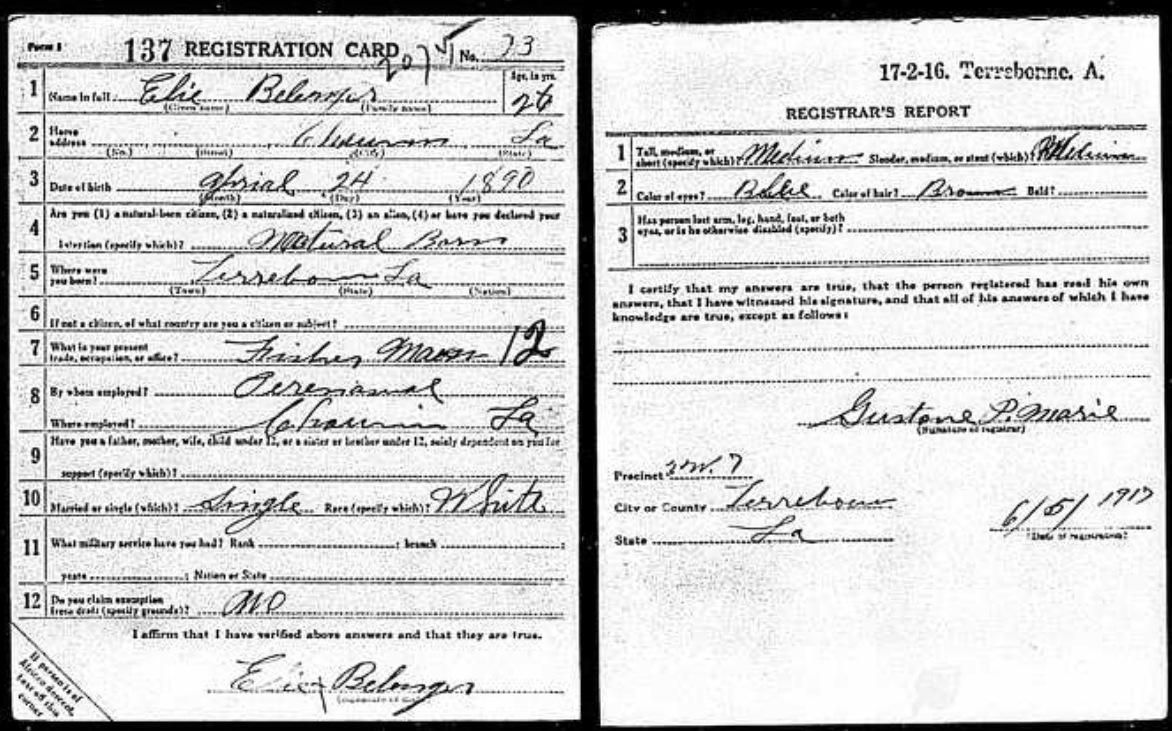 Form 1 137 REGISTRATION CARD No. 73
1 Name in full Elie Belanger Age, in yrs. 26
(Given name) (Family name)
2 Home address Chauvin La
(No.) (Street) (City) (State)
3 Date of birth Aprial 24 1890
(Month) (Day) (Year)
4 Are you (1) a natural-born citizen, (2) a naturalized citizen, (3) an alien, (4) or have you declared your
intention (specify which)? Natural Born
5 Where were you born? Terrebonne La
(Town) (State) (Nation)
6 If not a citizen, of what country are you a citizen or subject?
7 What is your present trade, occupation, or office? Fisher Man 12
8 By whom employed?
Where employed? Chauvin La
9 Have you a father, mother, wife, child under 12, or a sister or brother under 12, solely dependent on you for
support (specify which)?
10 Married or single (which)? Single Race (specify which)? White
11 What military service have you had? Rank ; branch ;
years ; Nation or State
12 Do you claim exemption from draft (specify grounds)? No
I affirm that I have verified above answers and that they are true.
Elie Belanger
If person is of
African descent,
tear off this
corner
17-2-16. Terrebonne. A.
REGISTRAR'S REPORT
1 Tall, medium, or short (specify which)? Medium Slender, medium, or stout (which)? Medium
2 Color of eyes? Blue Color of hair? Brown Bald?
3 Has person lost arm, leg, hand, foot, or both
eyes, or is he otherwise disabled (specify)?
I certify that my answers are true, that the person registered has read his own
answers, that I have witnessed his signature, and that all of his answers of which I have
knowledge are true, except as follows:
Gustave P. Marie
(Signature of registrar)
Precinct 2 W. 7
City or County Terrebonne
State La
6/5/1917
(Date of registration)